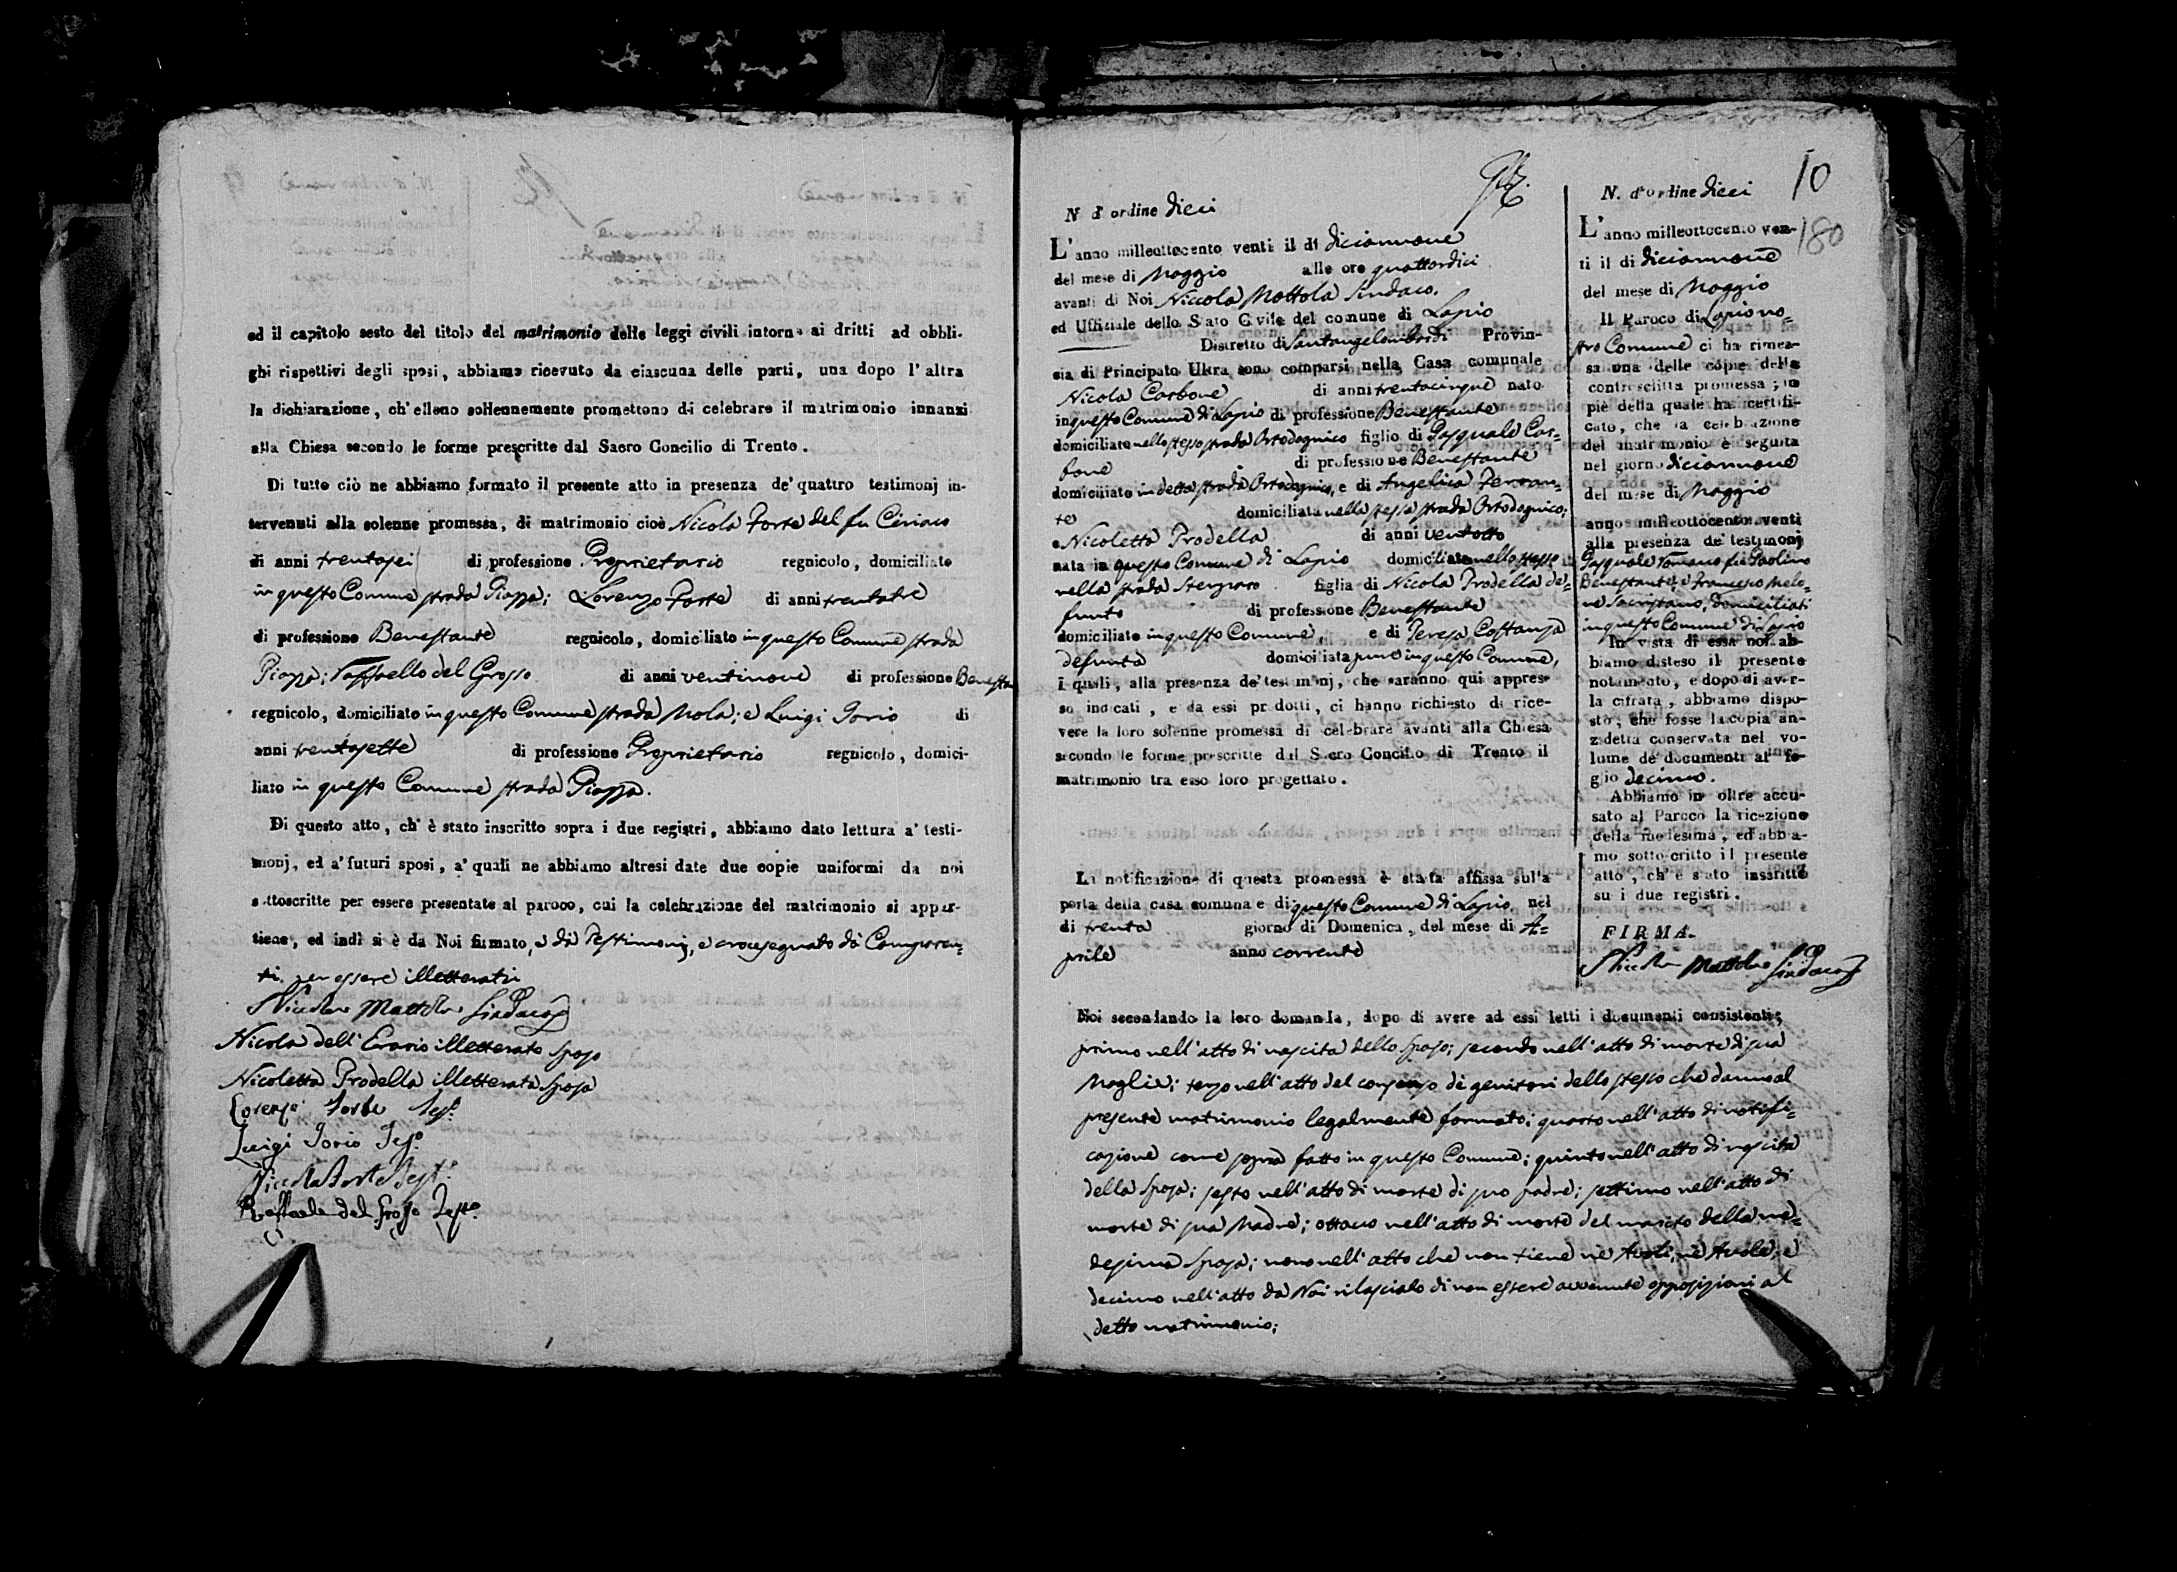 ed il capitolo sesto del titolo del matrimonio delle leggi civili intorno ai dritti ad obbli-
ghi rispettivi degli sposi, abbiamo ricevuto da ciascuna delle parti, una dopo l'altra
la dichiarazione, ch'elleno sollennemente promettono di celebrare il matrimonio innanzi
alla Chiesa secondo le forme prescritte dal Sacro Concilio di Trento.
Di tutto ciò ne abbiamo formato il presente atto in presenza de' quattro testimonj in-
tervenuti alla solenne promessa, di matrimonio cioè Nicola Forte del fu Ciriaco
di anni trentasei di professione Proprietario regnicolo, domiciliato
in questo Comune strada Piazza; Lorenzo Forte di anni trentatre
di professione Benestante regnicolo, domiciliato in questo Comune strada
Piazza; Raffaello del Grosso di anni ventinove di professione Benestan
regnicolo, domiciliato in questo Comune strada Mola; e Luigi Iorio di
anni trentasette di professione Proprietario regnicolo, domici-
liato in questo Comune strada Piazza.
Di questo atto, ch'è stato inscritto sopra i due registri, abbiamo dato lettura a' testi-
monj, ed a' futuri sposi, a' quali ne abbiamo altresi date due copie uniformi da noi
sottoscritte per essere presentate al paroco, cui la celebrazione del matrimonio si appar-
tiene, ed indi si è da Noi firmato, e da Testimonj, e crocesegnato da Comparen-
ti per essere illetterati
Niccola Mottola Sindaco
Nicola dell'Erario illetterato Sposo
Nicoletta Prodella illetterata Sposa
Lorenzo Forte Tes.º
Luigi Iorio Tes.º
Niccola Forte Test.º
Raffaele del Grosso Testº.
N. d'ordine dieci
L'anno milleottocento venti il di diciannove
del mese di Maggio alle ore quattordici
avanti di Noi Niccola Mottola Sindaco,
ed Uffiziale dello Stato Civile del comune di Lapio
Distretto di Santangelombardi Provin-
cia di Principato Ultra sono comparsi nella Casa comunale
Nicola Carbone di anni trentacinque nato
in questo Comune di Lapio di professione Benestante
domiciliato nello stesso strada Ortodognico figlio di Pasquale Car=
bone di professione Benestante
domiciliato in detta strada Ortodognico, e di Angelica Ferran=
te domiciliata nella stessa strada Ortodognico;
e Nicoletta Prodella di anni ventotto
nata in questo Comune di Lapio domiciliata nello stesso
nella strada figlia di Nicola Prodella de=
funto di professione Benestante
domiciliato in questo Comune, e di Teresa Costanza
defunta domiciliata pure in questo Comune,
i quali, alla presenza de' testimonj, che saranno qui appres-
so indicati, e da essi prodotti, ci hanno richiesto di rice-
vere la loro solenne promessa di celebrare avanti alla Chiesa
secondo le forme prescritte dal Sacro Concilio di Trento il
matrimonio tra esso loro progettato.
La notificazione di questa promessa è stata affissa sulla
porta della casa comunale di questo Comune di Lapio nel
di trenta giorno di Domenica, del mese di A=
prile anno corrente
Noi secondando la loro domanda, dopo di avere ad essi letti i documenti consistenti;
primo nell'atto di nascita dello Sposo; secondo nell'atto di morte di sua
Moglie; terzo nell'atto del consenso de genitori dello stesso che danno al
presente matrimonio legalmente formato; quarto nell'atto di notifi=
cazione come sopra fatto in questo Comune; quinto nell'atto di nascita
della Sposa; sesto nell'atto di morte di suo padre; settimo nell'atto di
morte di sua Madre; ottavo nell'atto di morte del marito della me=
desima Sposa; nono nell'atto che non tiene nè Avoli, nè Avole, e
decimo nell'atto da Noi rilasciato di non essere avvenute opposizioni al
detto matrimonio;
10
180
N. d'ordine dieci
L'anno milleottocento ven-
ti il di diciannove
del mese di Maggio
Il Paroco di Lapio no=
stro Comune ci ha rimes-
sa una delle copie della
controscritta promessa; in
piè della quale ha certifi-
cato, che la celebrazione
del matrimonio è seguita
nel giorno diciannove
del mese di Maggio
anno milleottocento venti
alla presenza de' testimonj
Pasquale Romano fu Paolino
Benestante, e Francesco Melo=
ne Sacristano, domiciliati
in questo Comune di Lapio
In vista di essa noi ab-
biamo disteso il presente
notamento, e dopo di aver-
la cifrata, abbiamo dispo-
sto, che fosse la copia an-
zidetta conservata nel vo-
lume de' documenti al fo-
glio decimo.
Abbiamo in oltre accu-
sato al Paroco la ricezione
della medesima, ed abbia-
mo sottoscritto il presente
atto, ch'è stato inscritto
su i due registri.
FIRMA.
Niccola Mottola Sindaco